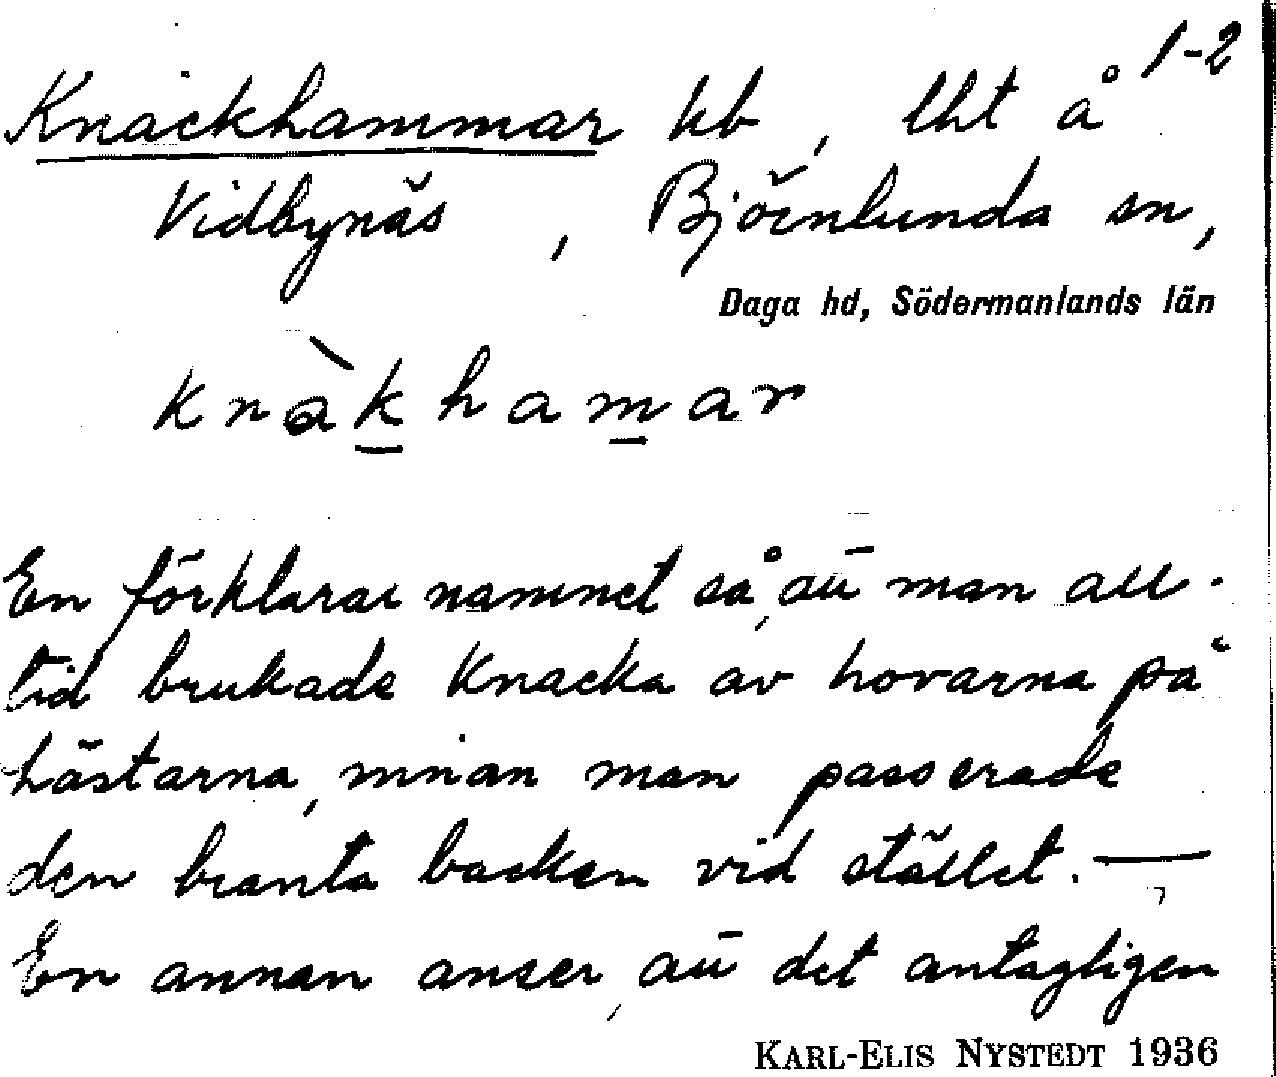 1-2
Knackhammar hb, lht å
Vidbynäs, Björnlunda sn,
Daga hd, Södermanlands län
knàkhamar
En förklarar namnet så, att man all-
tid brukade knacka av hovarna på
hästarna, innan man passerade
den branta backen vid stället. —
En annan anser, att det antagligen
KARL-ELIS NYSTEDT 1936